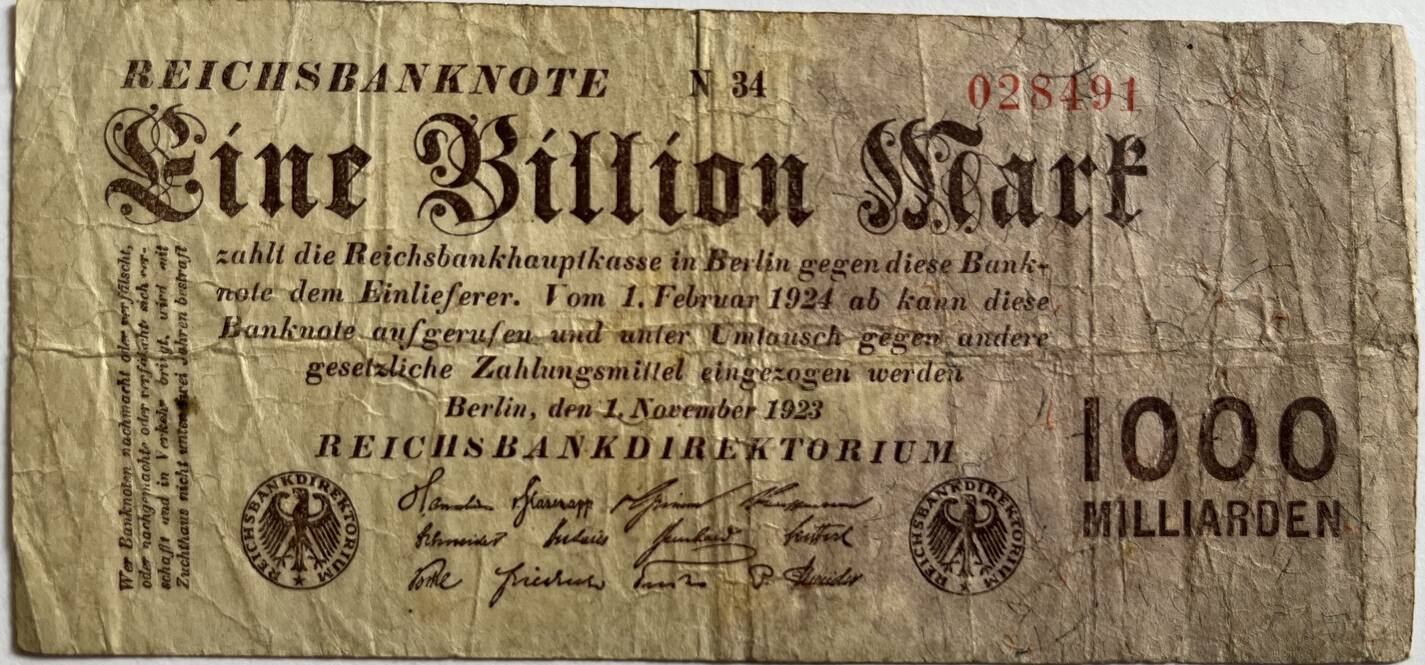 REICHSBANKNOTE N 34 028491
Eine Billion Mark
zahlt die Reichsbankhauptkasse in Berlin gegen diese Bank-
note dem Einlieferer. Vom 1. Februar 1924 ab kann diese
Banknote aufgerufen und unter Umtausch gegen andere
gesetzliche Zahlungsmittel eingezogen werden
Berlin, den 1. November 1923
REICHSBANKDIREKTORIUM
Wer Banknoten nachmacht oder verfälscht,
oder nachgemachte oder verfälschte sich ver-
schafft und in Verkehr bringt, wird mit
Zuchthaus nicht unter zwei Jahren bestraft
1000
MILLIARDEN
REICHSBANKDIREKTORIUM
REICHSBANKDIREKTORIUM
Schneider
Vocke Friedrich P. Schneider